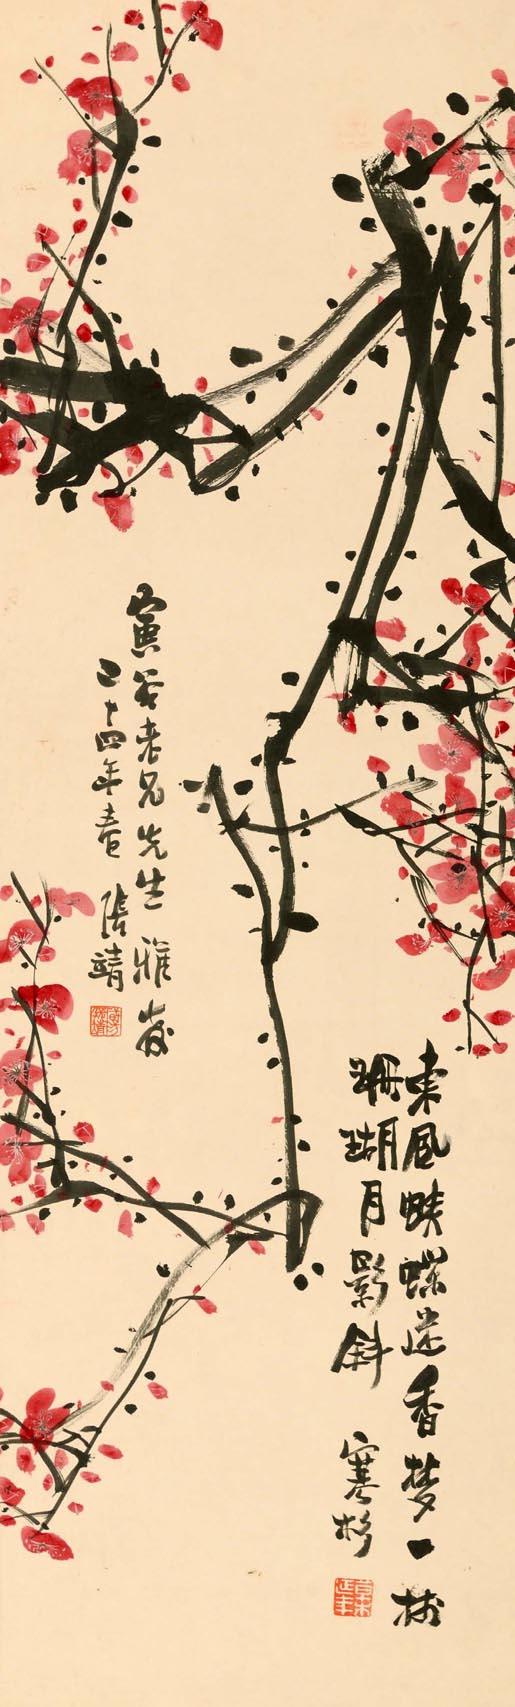 東風蛺蝶迷香梦一树
珊瑚月影斜 寒杉
寅谷老兄先生雅
二十四年春 張靖